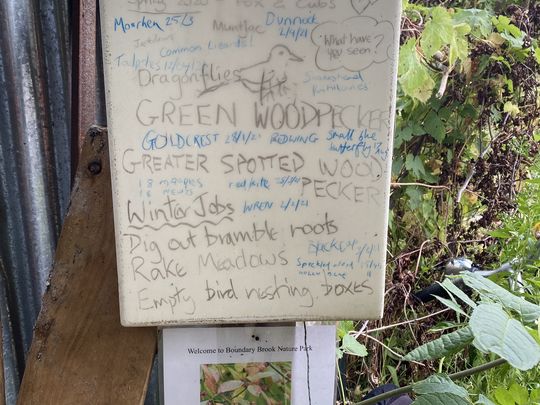 Spring 2020 Fox & Cubs
Moorhen 25/3
Muntjac
Dunnock
2/4/21
What have
you seen?
Common Lizards!
Dragonflies
GREEN WOODPECKER
GOLDCREST
REDWING
Small blue
butterfly
GREATER SPOTTED WOOD
PECKER
18 magpies
16 newts
red kite
Winter Jobs
WREN 2/2/21
Dig out bramble roots
Rake Meadows
Speckled wood
Empty bird nesting boxes
Welcome to Boundary Brook Nature Park